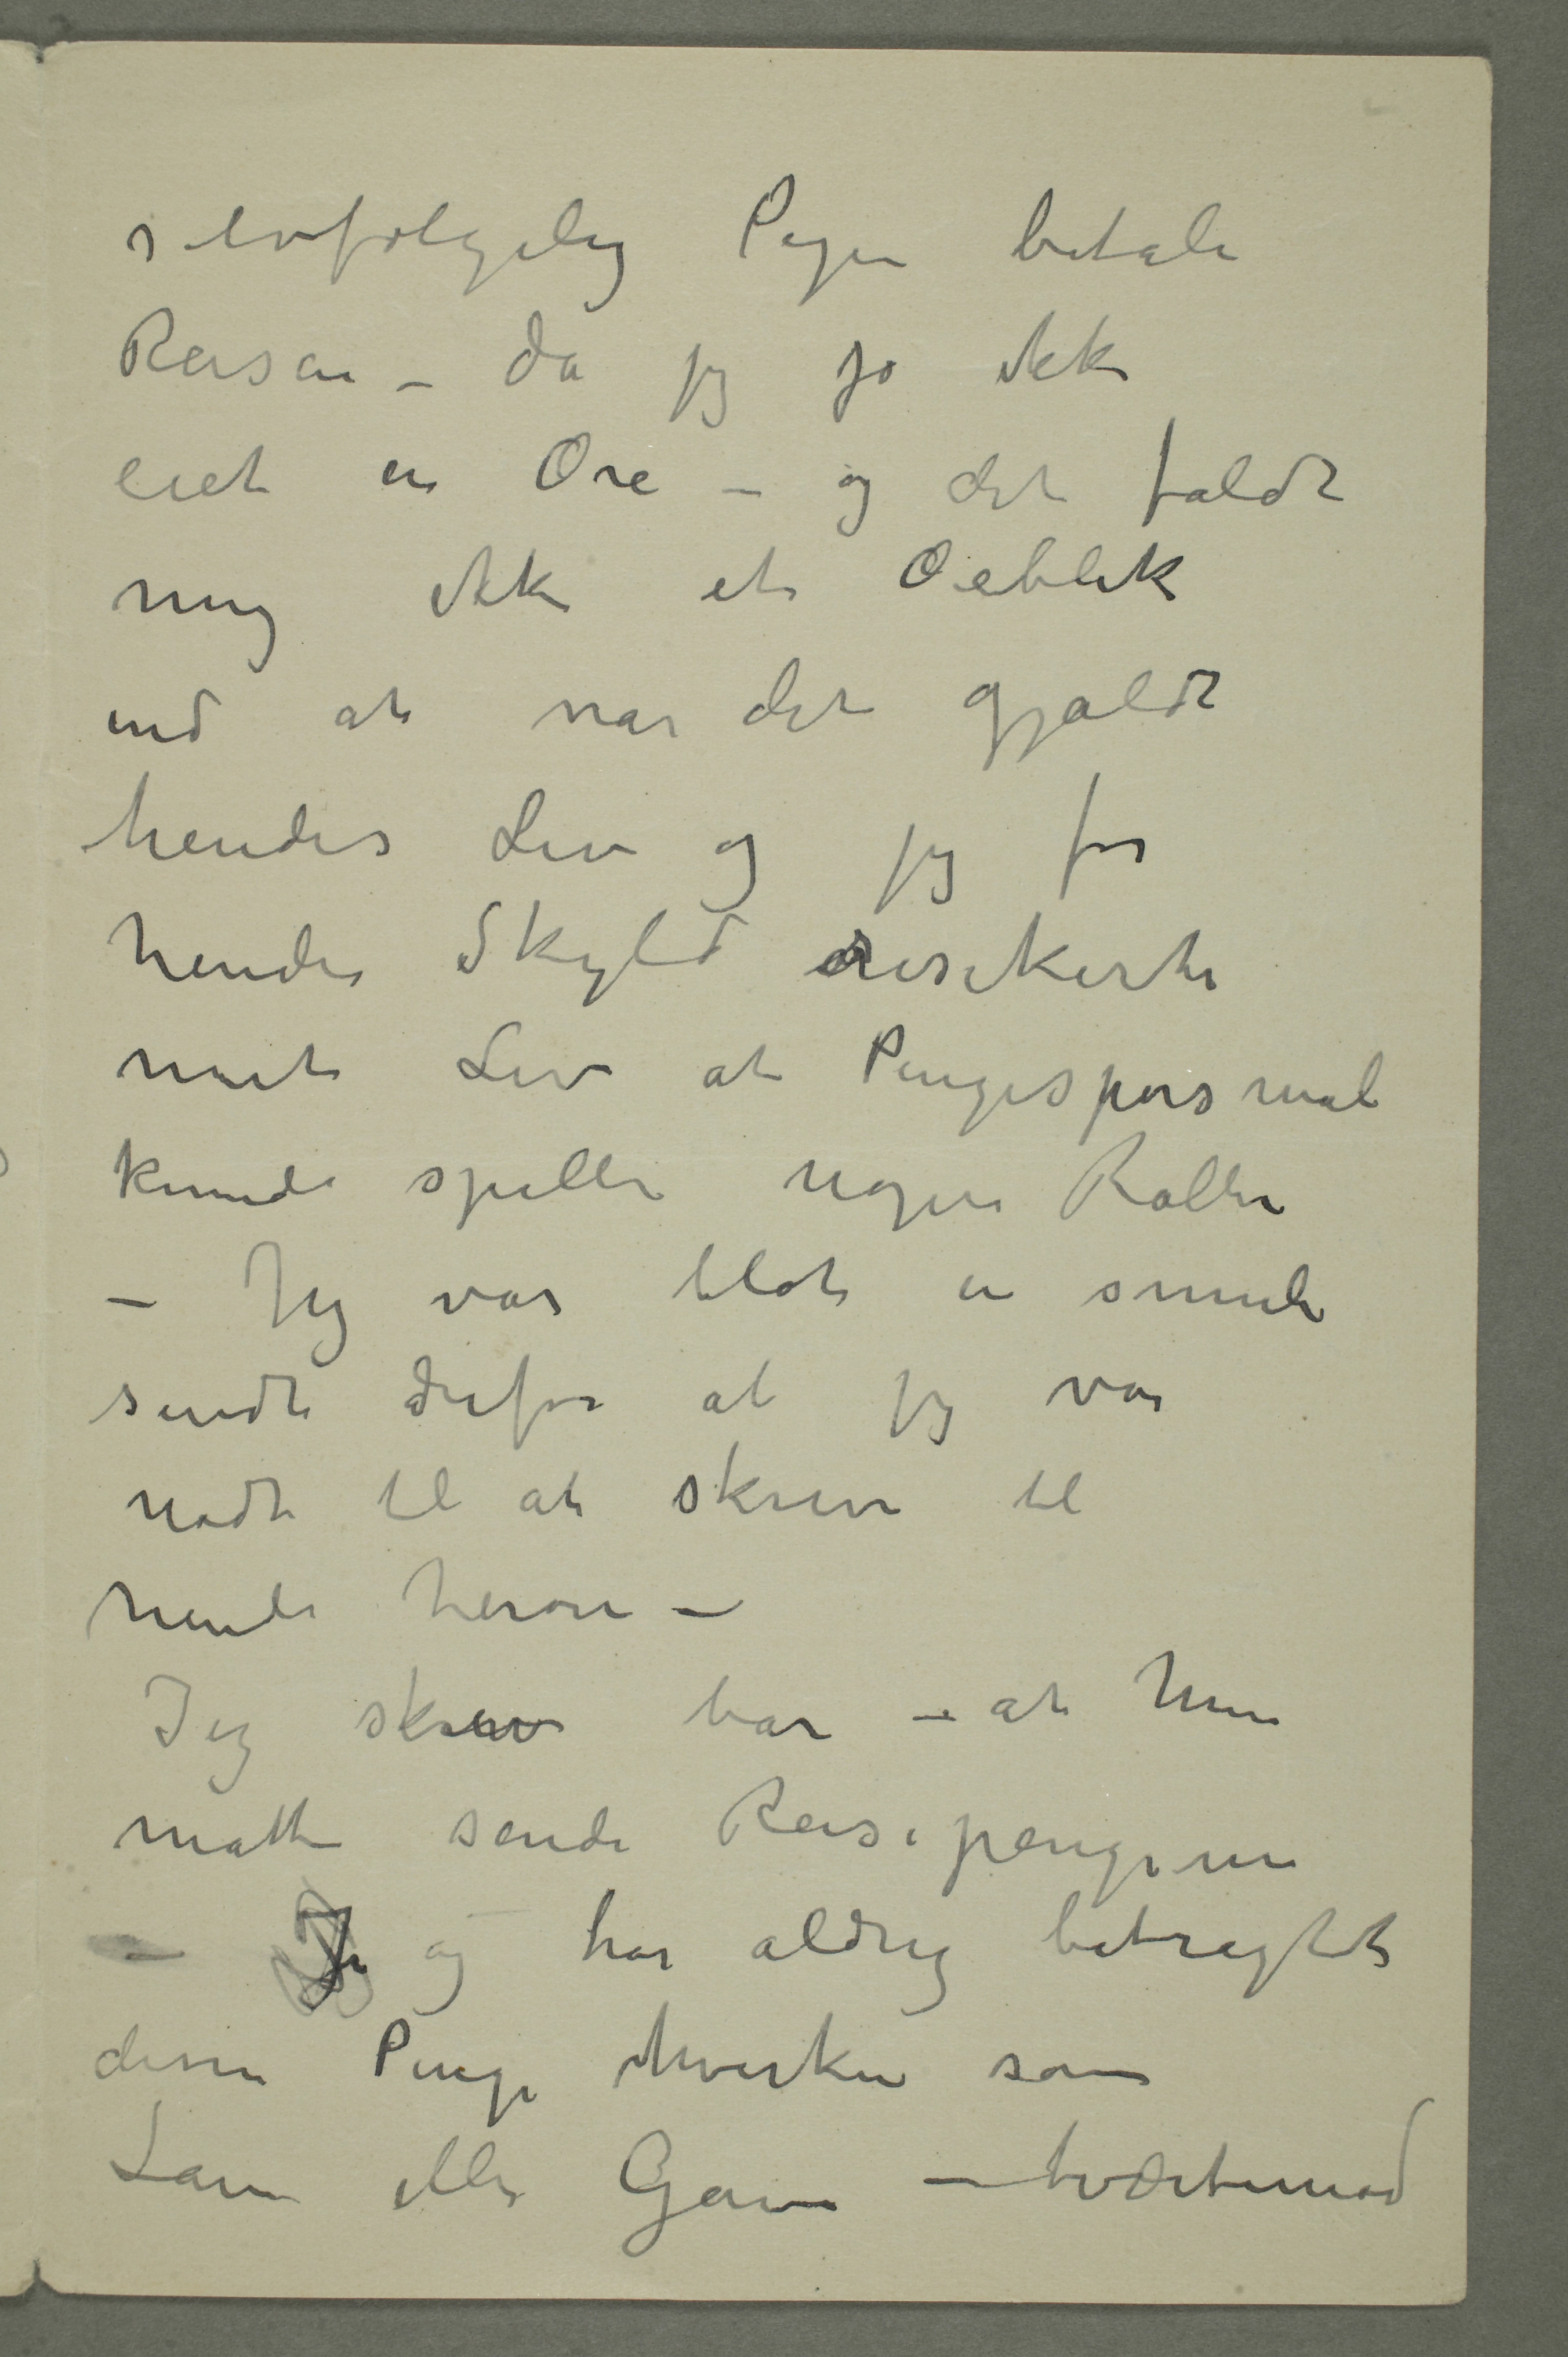 selvfølgelig Pigen betale
Reisen – da jeg jo ikke
eiet en Øre – og det faldt
mig ikke et Øieblik
ind at når det gjaldt
hendes Liv og jeg for
hendes Skyld risikerte
mit Liv at Pengespørsmål
kunde spille nogen Rolle
– Jeg var blot en smule
sindt derfor at jeg var
nødt til at skrive til
hende herom –
Jeg skrev bar – at hun
måtte sende Reisepengene
– og har aldrig betragtet
disse Penge hverken som
Lån eller Gave – tværtimod